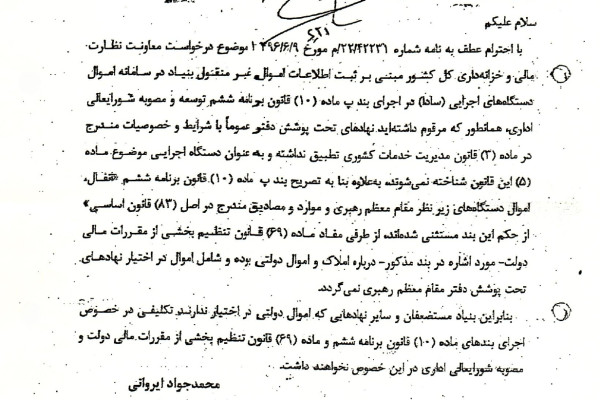 سلام علیکم
با احترام عطف به نامه شماره ۲۲/۴۲۲۳۱/م مورخ ۱۳۹۶/۶/۹ موضوع درخواست معاونت نظارت
مالی و خزانه‌داری کل کشور مبنی بر ثبت اطلاعات اموال غیر منقول بنیاد در سامانه اموال
دستگاه‌های اجرایی (سادا) در اجرای بند پ ماده (۱۰) قانون برنامه ششم توسعه و مصوبه شورایعالی
اداری، همانطور که مرقوم داشته‌اید نهادهای تحت پوشش دفتر عموماً با شرایط و خصوصیات مندرج
در ماده (۳) قانون مدیریت خدمات کشوری تطبیق نداشته و به عنوان دستگاه اجرایی موضوع ماده
(۵) این قانون شناخته نمی‌شوند، به‌علاوه بنا به تصریح بند پ ماده (۱۰) قانون برنامه ششم «انفال،
اموال دستگاه‌های زیر نظر مقام معظم رهبری و موارد و مصادیق مندرج در اصل (۸۳) قانون اساسی»
از حکم این بند مستثنی شده‌اند، از طرفی مفاد ماده (۶۹) قانون تنظیم بخشی از مقررات مالی
دولت- مورد اشاره در بند مذکور- درباره املاک و اموال دولتی بوده و شامل اموال در اختیار نهادهای
تحت پوشش دفتر مقام معظم رهبری نمی‌گردد.
بنابراین بنیاد مستضعفان و سایر نهادهایی که اموال دولتی در اختیار ندارند تکلیفی در خصوص
اجرای بندهای ماده (۱۰) قانون برنامه ششم و ماده (۶۹) قانون تنظیم بخشی از مقررات مالی دولت و
مصوبه شورایعالی اداری در این خصوص نخواهند داشت.
محمدجواد ایروانی